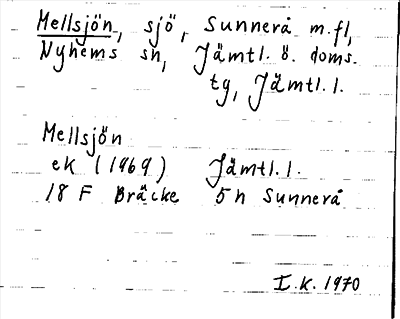 Mellsjön, sjö, Sunnerå m.fl,
Nyhems sn, Jämtl. ö. doms.
tg, Jämtl. l.
Mellsjön
ek (1969) Jämtl. l.
18 F Bräcke 5 h Sunnerå
I.K. 1970